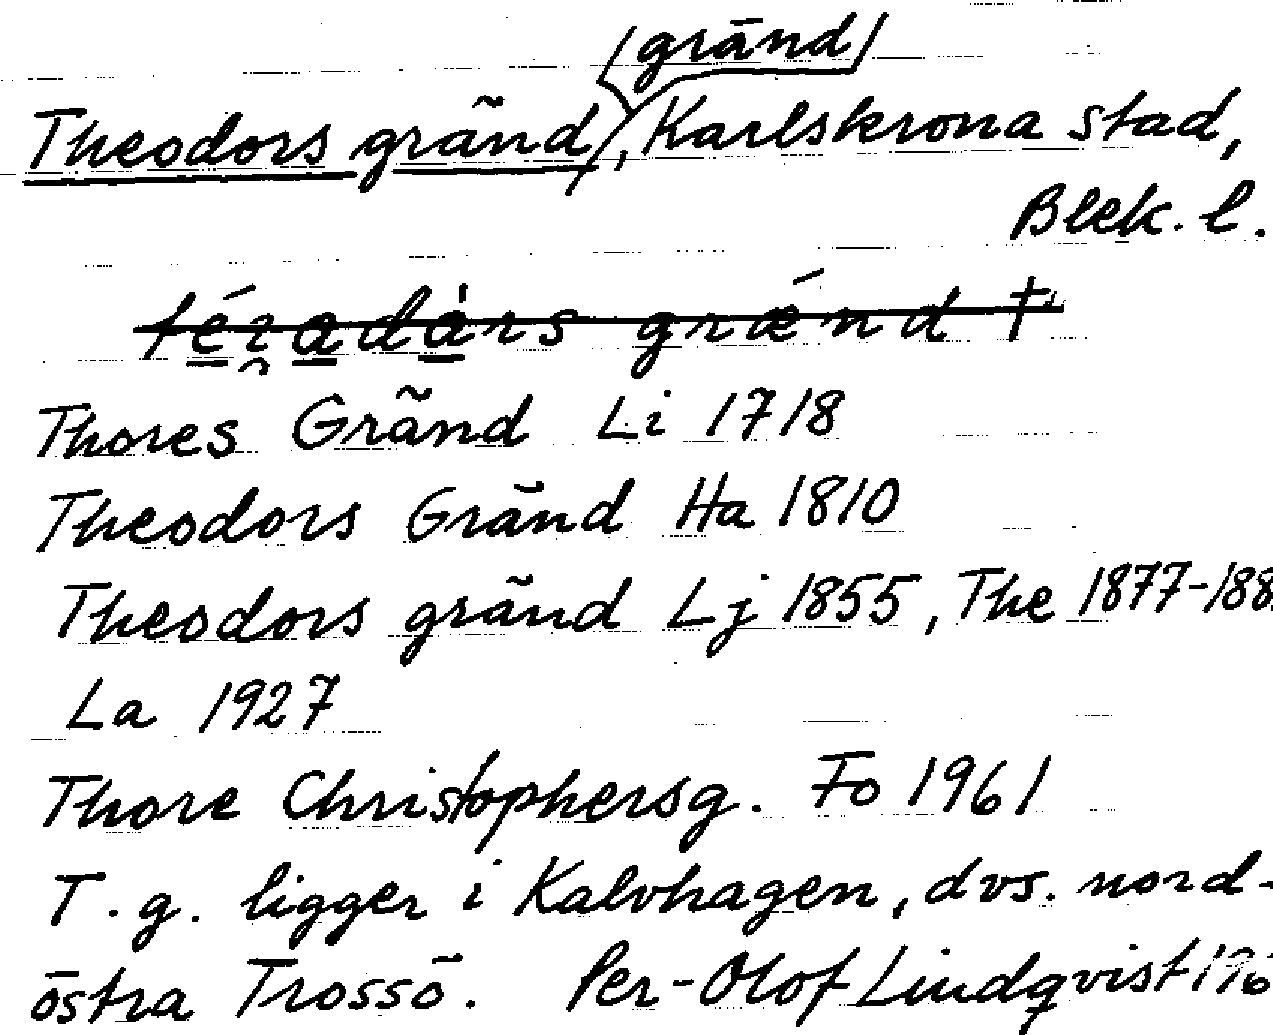 (gränd)
Theodors gränd, Karlskrona stad,
Blek. l.
Thores Gränd Li 1718
Theodors Gränd Ha 1810
Theodors gränd Lj 1855, The 1877-188
La 1927
Thore Christophersg. Fo 1961
T. g. ligger i Kalvhagen, dvs. nord-
östra Trossö. Per-Olof Lindqvist 196